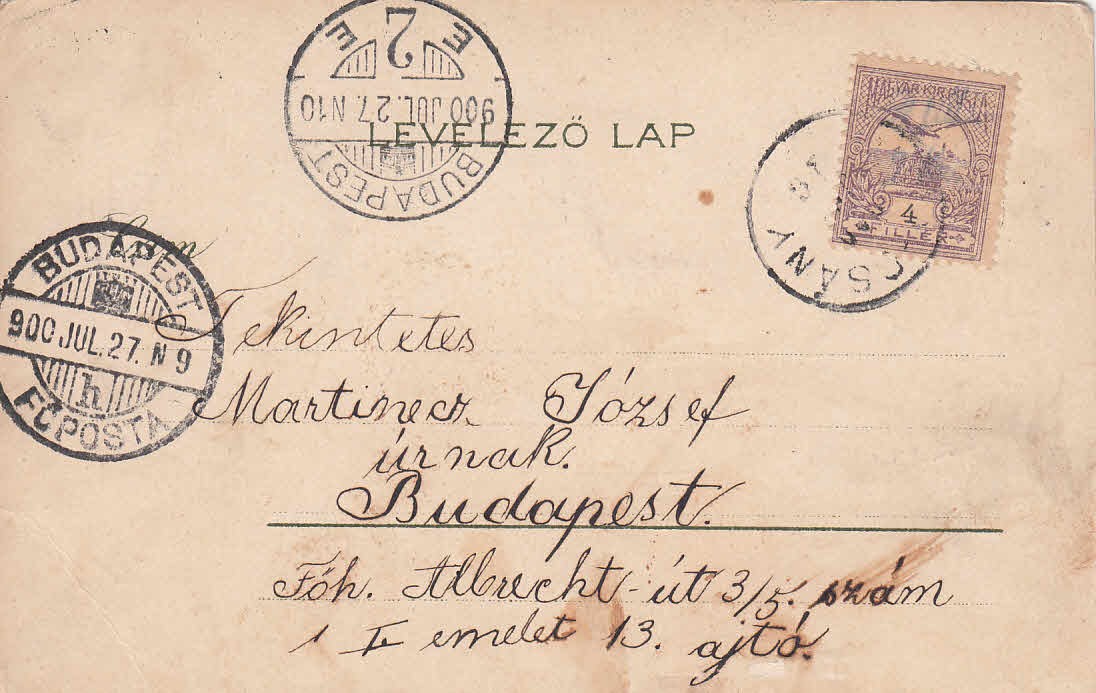 E 2 E
900 JUL. 27. N10
BUDAPEST
LEVELEZŐ LAP
MAGYAR KIR. POSTA
4
FILLÉR
CSÁNY
BUDAPEST
900 JUL. 27. N 9
h
FŐPOSTA
Tekintetes
Martinecz József
úrnak.
Budapest.
Főh. Albrecht-út 3/5. szám
I emelet 13. ajtó.